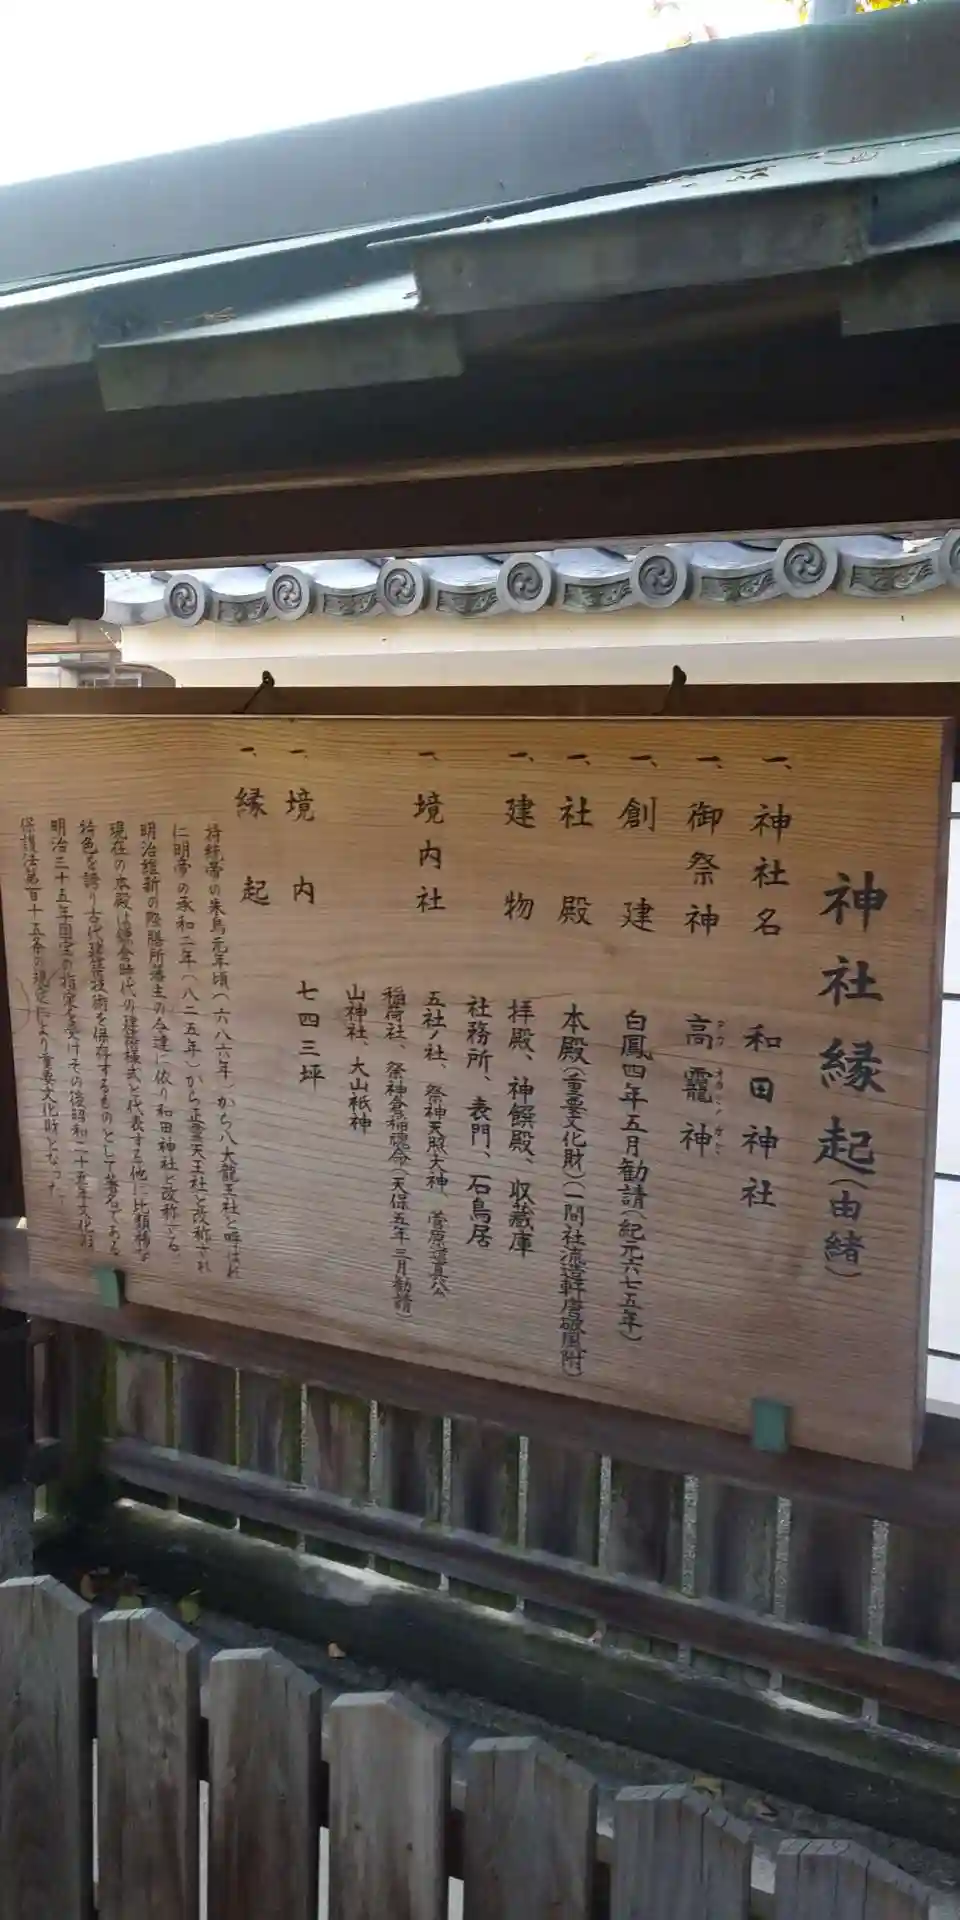 神社縁起(由緒)
一、神社名 和田神社
一、御祭神 高龗神
一、創建 白鳳四年五月勧請(紀元六七五年)
一、社殿 本殿(重要文化財)(一間社流造軒唐破風附)
一、建物 拝殿、神饌殿、収蔵庫
社務所、表門、石鳥居
一、境内社 五社ノ社、祭神天照大神、菅原道真公
稲荷社、祭神倉稲魂命(天保五年三月勧請)
山神社、大山祇神
一、境内 七四三坪
一、縁起
持統帝の朱鳥元年頃(六八六年)から八大龍王社と呼ばれ
仁明帝の承和二年(八二五年)から正霊天王社と改称され
明治維新の際膳所藩主の令達に依り和田神社と改称する
現在の本殿は鎌倉時代の建築様式を代表する他に比類稀な
特色を誇り古代建築技術を保存するものとして著名である
明治三十五年国宝の指定を受けその後昭和二十五年文化財
保護法第百十五条の規定により重要文化財となった。